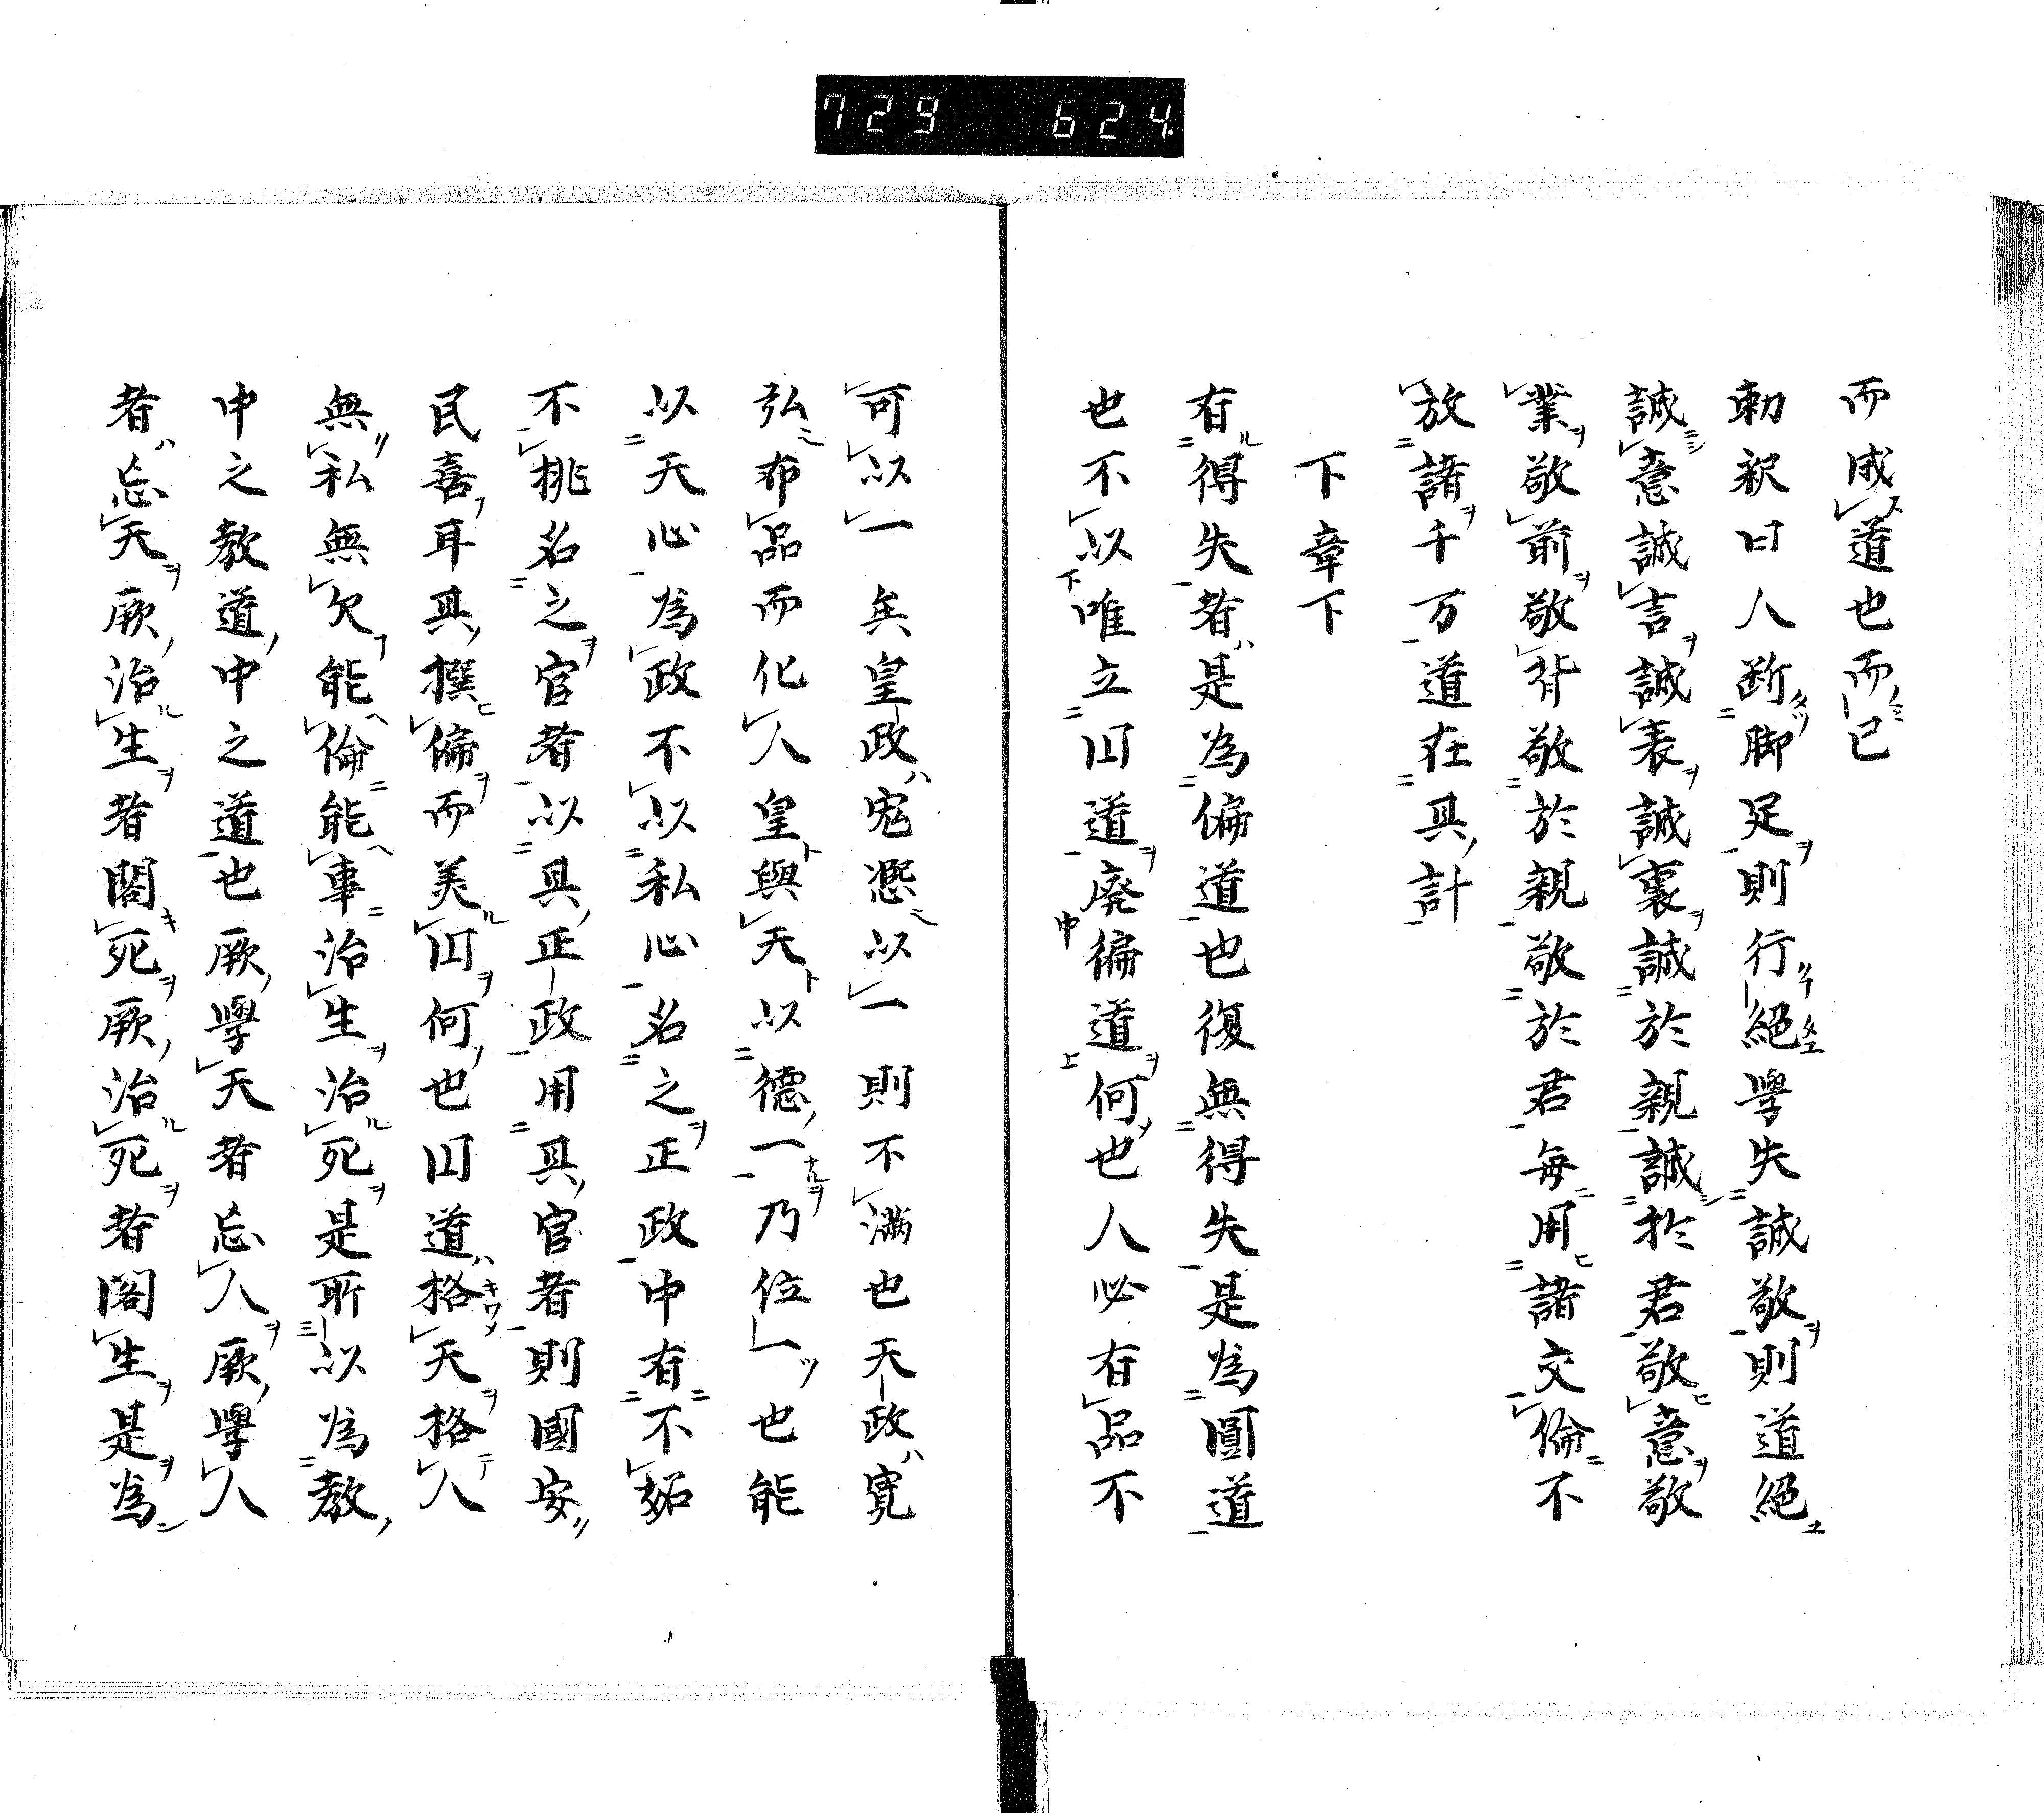 729 624
而成道也而已
勅釈曰人断脚足則行絕學失誠敬則道絕
誠意誠言誠表誠裏誠於親誠於君敬意敬
業敬前敬背敬於親敬於君每用諸交倫不
放諸千万道在其計
下章下
有得失者是為偏道也復無得失是為圓道
也不以唯立円道廃徧道何也人必有品不
可以一矣皇政宽慗以一則不滿也天政寛
弘布品而化人皇與天以德一乃位一也能
以天心為政不以私心名之正政中有不妬
不挑名之官者以其正政用其官者則國安
民喜耳其撰偏而美円何也円道格天格人
無私無欠能倫能事治生治死是所以為教
中之教道中之道也厥學天者忘人厥學人
者忘天厥治生者閣死厥治死者閣生是為